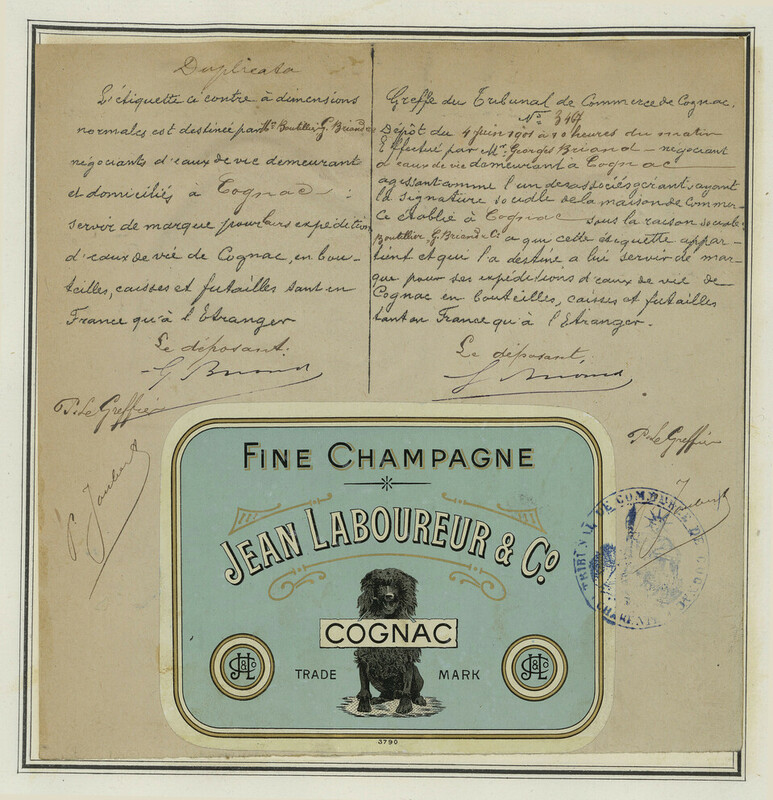 Duplicata
L'étiquette ci contre à dimensions
normales est destinée par Mrs Boutillier G. Briand &
négociants d'eaux de vie demeurant
et domiciliés à Cognac :
servir de marque pour leurs expéditions
d'eaux de vie de Cognac, en bou-
teilles, caisses et futailles tant en
France qu'à l'Etranger
Le déposant:
G. Briand
P. Le Greffier
P. Jaubert
Greffe du Tribunal de Commerce de Cognac.
No 3467
Dépôt du 4 juin 1901 à 10 heures du matin
Effectué par Mr Georges Briand – négociant
d'eaux de vie demeurant à Cognac
agissant comme l'un des associés gérant, ayant
la signature sociale de la maison de Commer-
ce établie à Cognac sous la raison sociale
Boutillier G. Briand & Ci a qui cette étiquette appar-
tient et qui l'a destine a lui servir de mar-
que pour ses expéditions d'eaux de vie de
Cognac en bouteilles, caisses et futailles
tant en France qu'à l'Etranger.
Le déposant,
G. Briand
P. Le Greffier
Jaubert
TRIBUNAL DE COMMERCE DE COGNAC
CHARENTE
FINE CHAMPAGNE
JEAN LABOUREUR & Co
COGNAC
TRADE MARK
JL & Co
JL & Co
3790